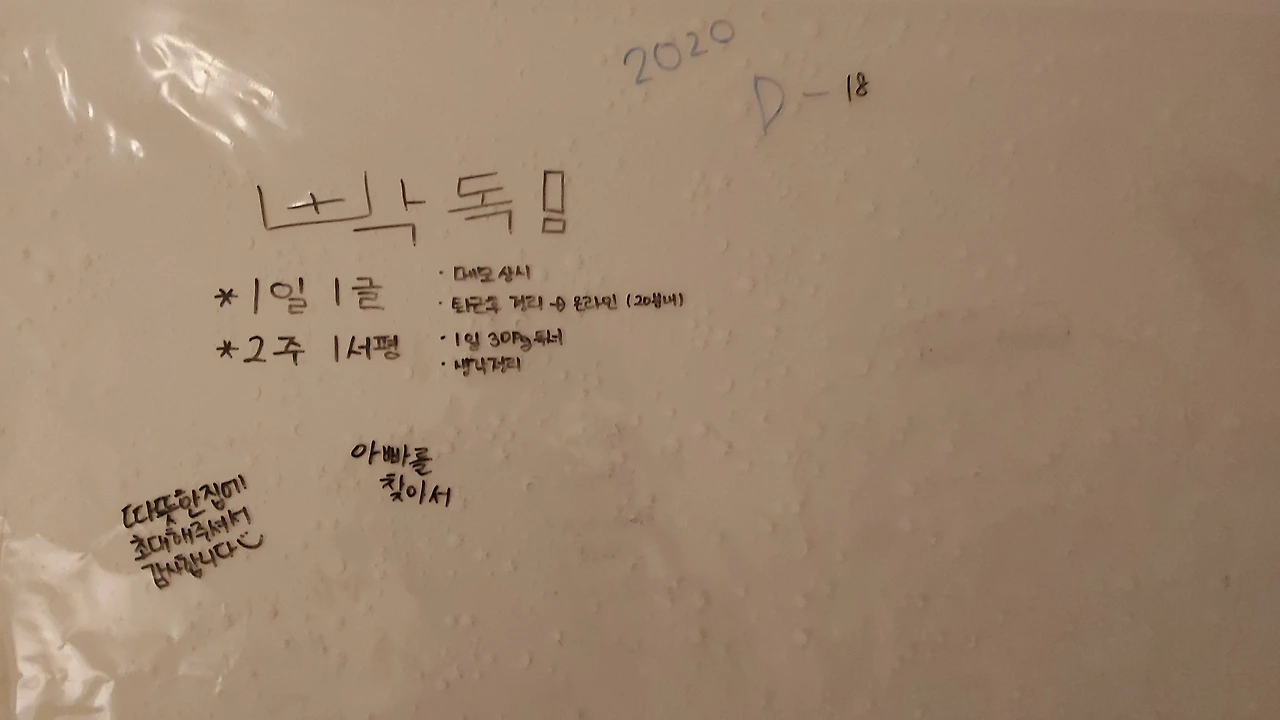 2020
D-18
낙독임
*1일 1글
· 메모 상시
· 퇴근후 정리 → 온라인 (20분내)
*2주 1서평
· 1일 30Pg 독서
· 생각정리
아빠를
찾아서
따뜻한집에
초대해주셔서
감사합니다